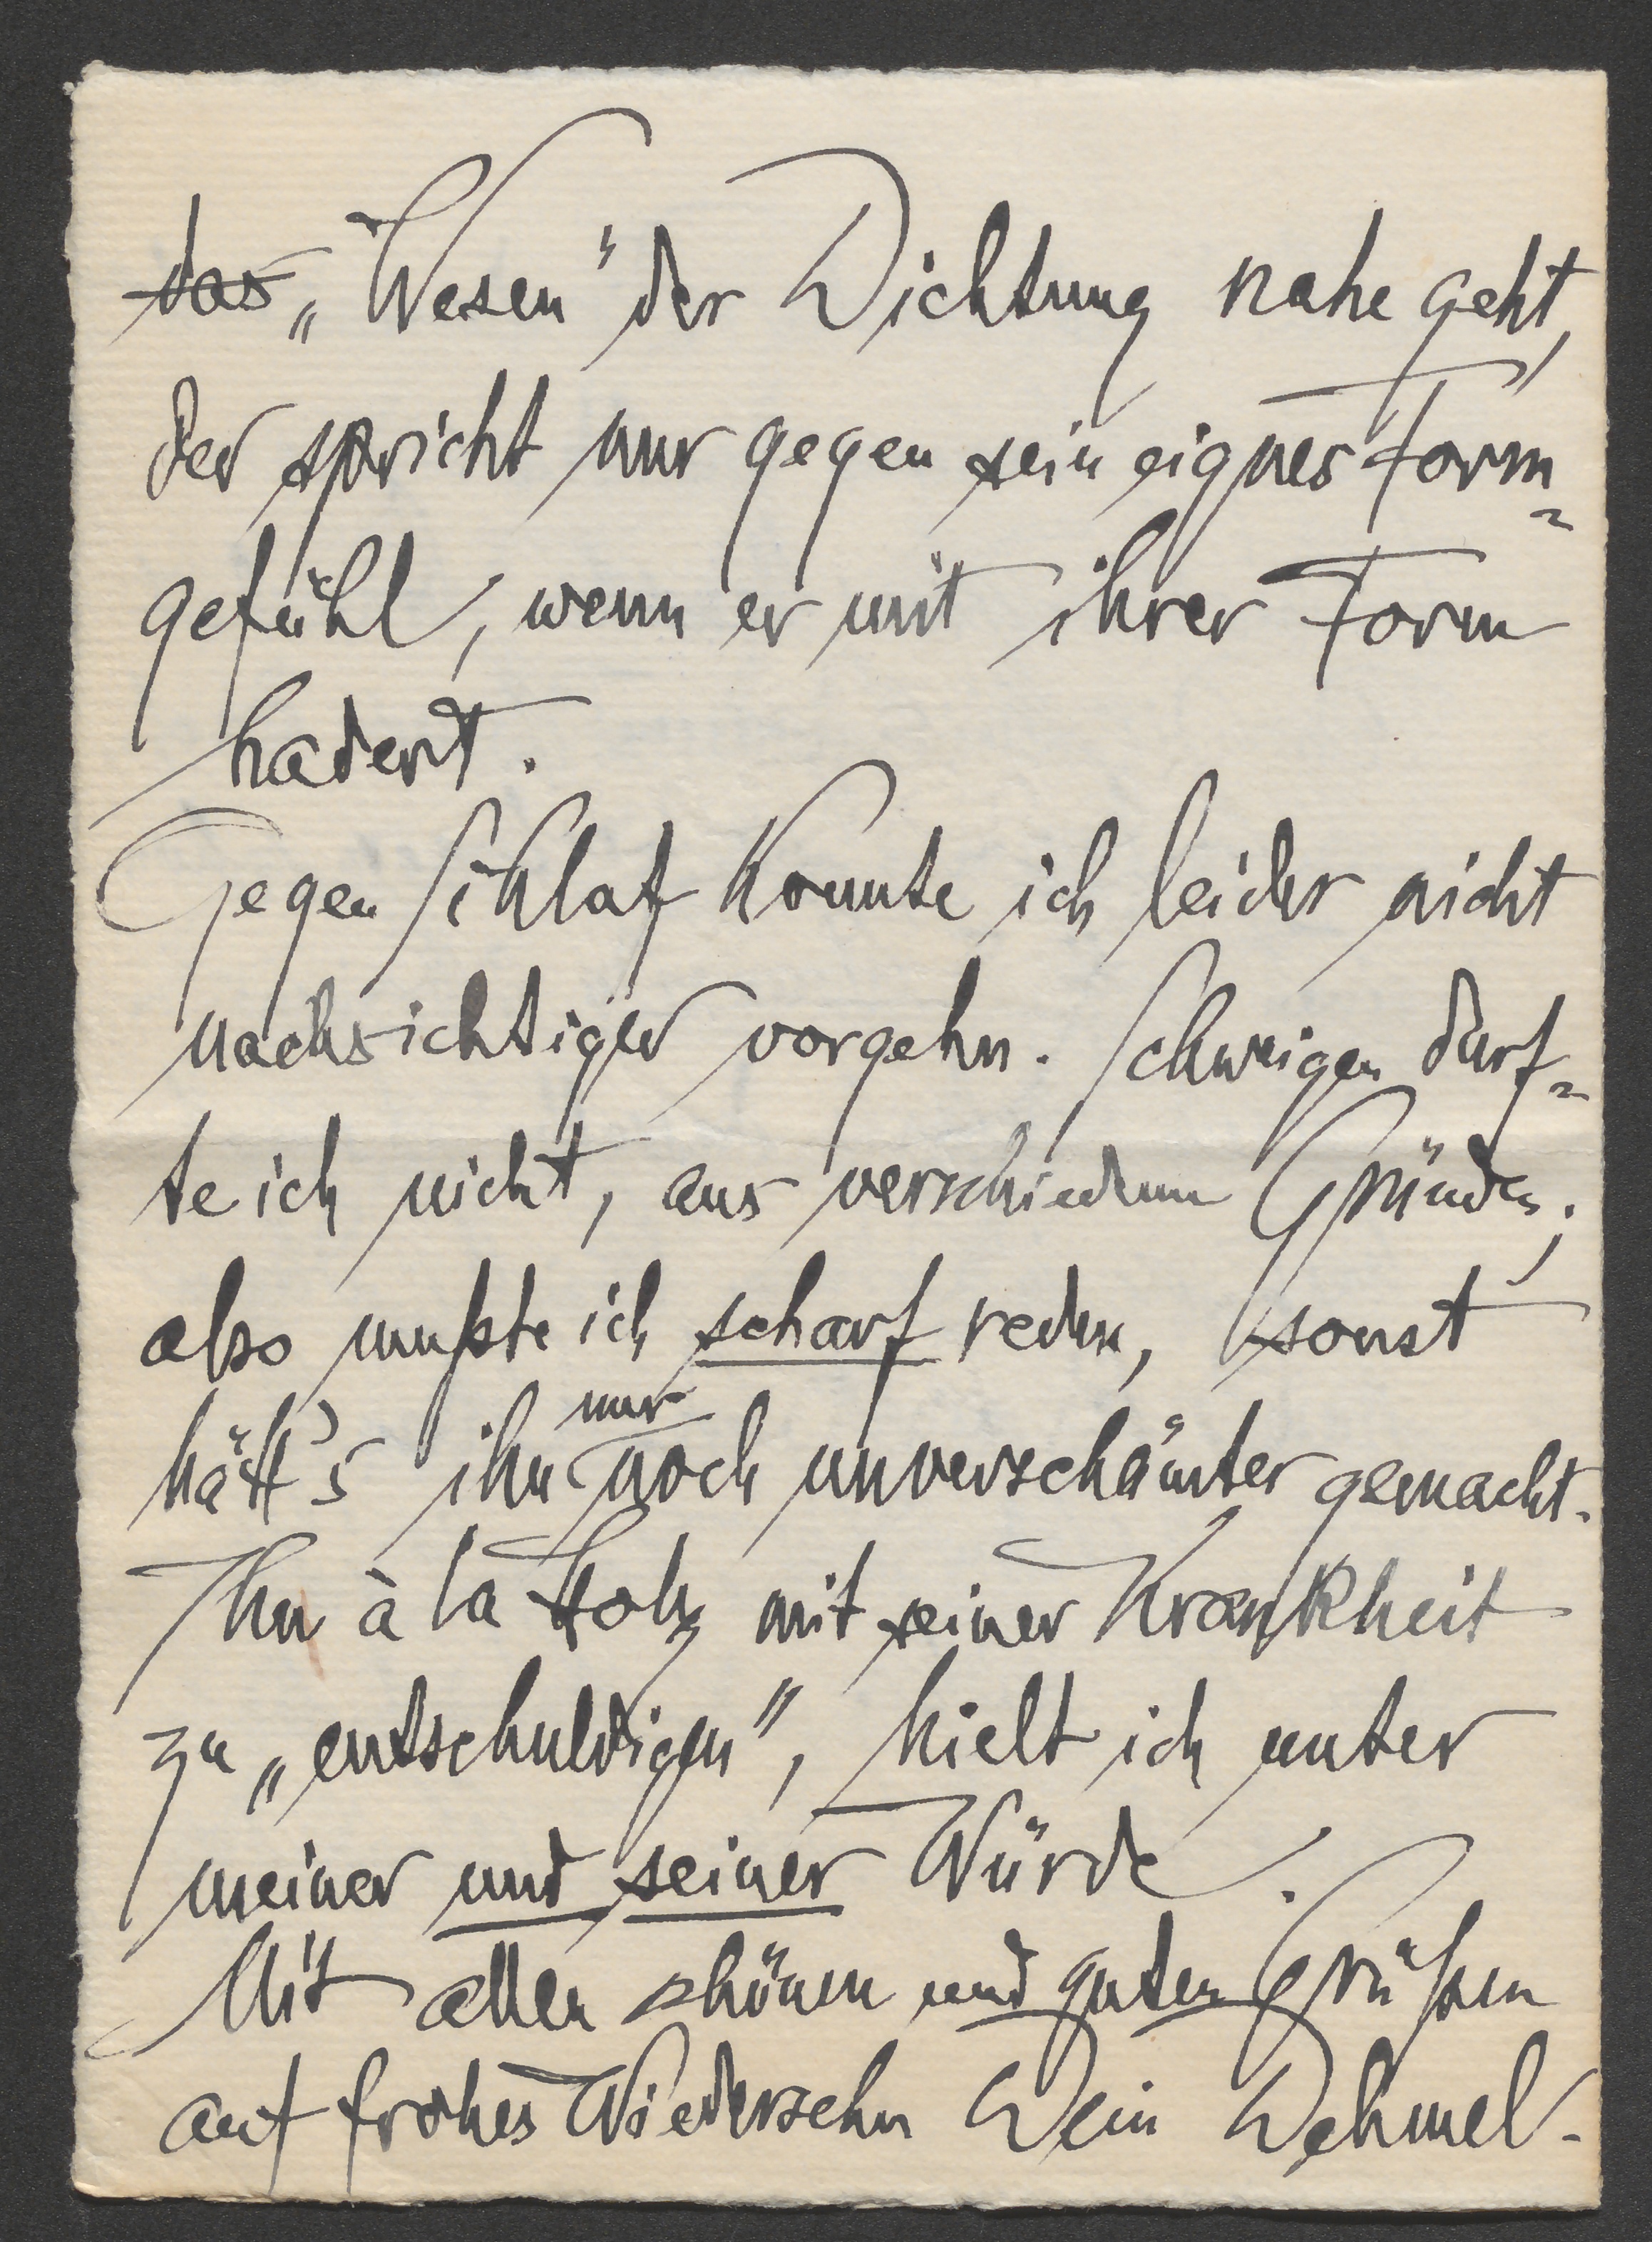 das „Wesen" der Dichtung nahe geht,
der spricht nur gegen sein eignes Form-
gefühl, wenn er mit ihrer Form
hadert.
Gegen Schlaf konnte ich leider nicht
nachsichtiger vorgehn. Schweigen durf-
te ich nicht, aus verschiednen Gründen;
also mußte ich scharf reden, sonst
nur
hätt's ihn noch unverschämter gemacht.
Ihn à la Holz mit seiner Krankheit
zu „entschuldigen", hielt ich unter
meiner und seiner Würde.
Mit allen schönen und guten Grüßen
auf frohes Wiedersehn Dein Dehmel.